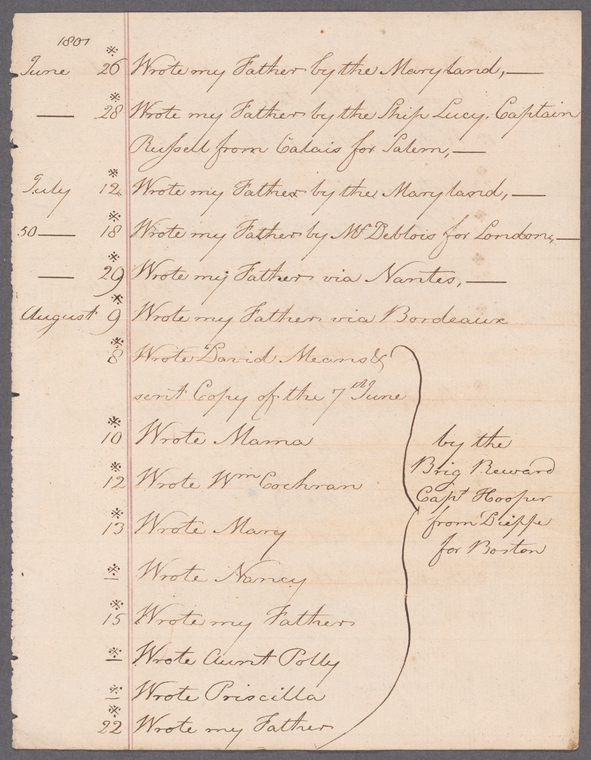 1801
June 26 Wrote my Father by the Maryland, —
— 28 Wrote my Father by the Ship Lucy. Captain
Russell from Calais for Salem, —
July 12 Wrote my Father by the Maryland, —
18 Wrote my Father by Mr Deblois for London, —
— 29 Wrote my Father via Nantes, —
August 9 Wrote my Father via Bordeaux
8 Wrote David Means &
sent Copy of the 7th June
10 Wrote Mama
12 Wrote Wm Cochran
13 Wrote Mary
— Wrote Nancy
15 Wrote my Father
— Wrote Aunt Polly
— Wrote Priscilla
22 Wrote my Father
by the
Brig Reward
Capt Hooper
from Dieppe
for Boston